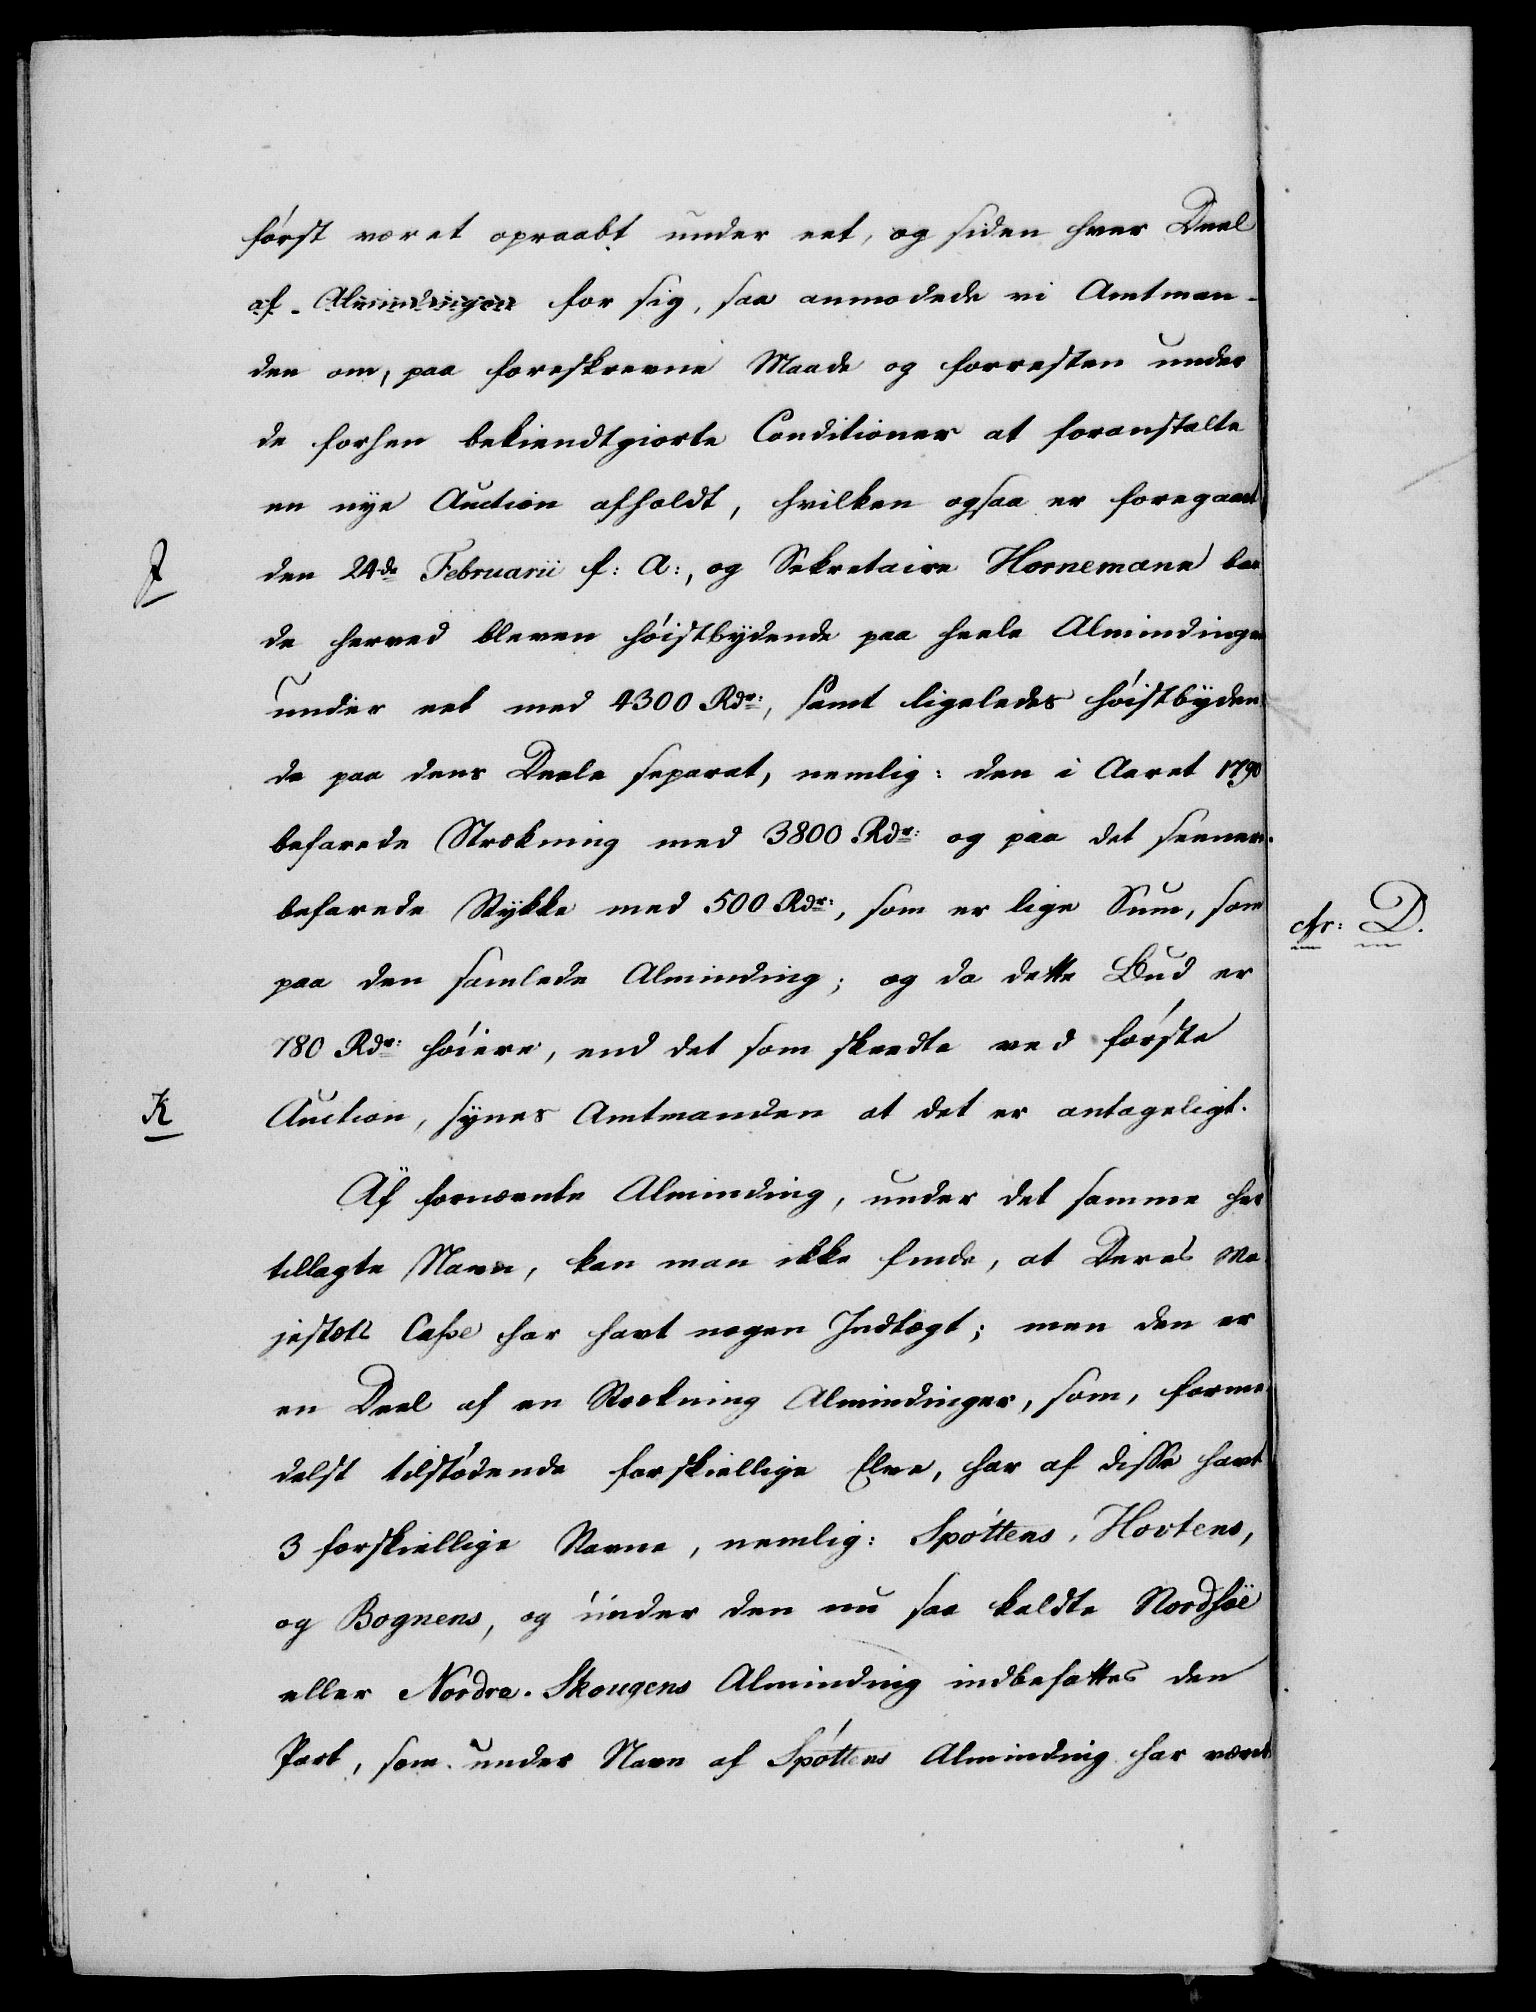 först været opraabt under eet, og siden hver Deel
af Almindingen for sig, saa anmodede vi Amtman-
den om, paa foreskrevne Maade og forresten under
de forhen bekiendtgiorte Conditioner at foranstalte
en nye Auction afholdt, hvilken ogsaa er foregaaet
J
den 24de Februarii f: A:, og Sekretaire Hornemann
de herved bleven höistbydende paa heele Almindingen
under eet med 4300 Rdr:, samt ligeledes höistbyden-
de paa dens Deele separat, nemlig: den i Aaret 1790
befarede Strækning med 3800 Rdr: og paa det seenere
befarede Stykke med 500 Rdr:, som er lige Sum, som
cfr: D.
paa den samlede Alminding; og da dette Bud er
780 Rdr: höiere, end det som skeedte ved förste
K
Auction, synes Amtmanden at det er antageligt.
Af fornævnte Alminding, under det samme her
tillagte Navn, kan man ikke finde, at Deres Ma-
jestæts Casse har havt nogen Indtægt; men den er
en Deel af en Strækning Almindinger, som, forme-
delst tilstödende forskiellige Elve, har af disse havt
3 forskiellige Navne, nemlig: Spöttens, Hovtens,
og Bognens, og under den nu saa kaldte Nordhöe
eller Nordre-Skougens Alminding indbefattes den
Part, som under Navn af Spöttens Alminding har været